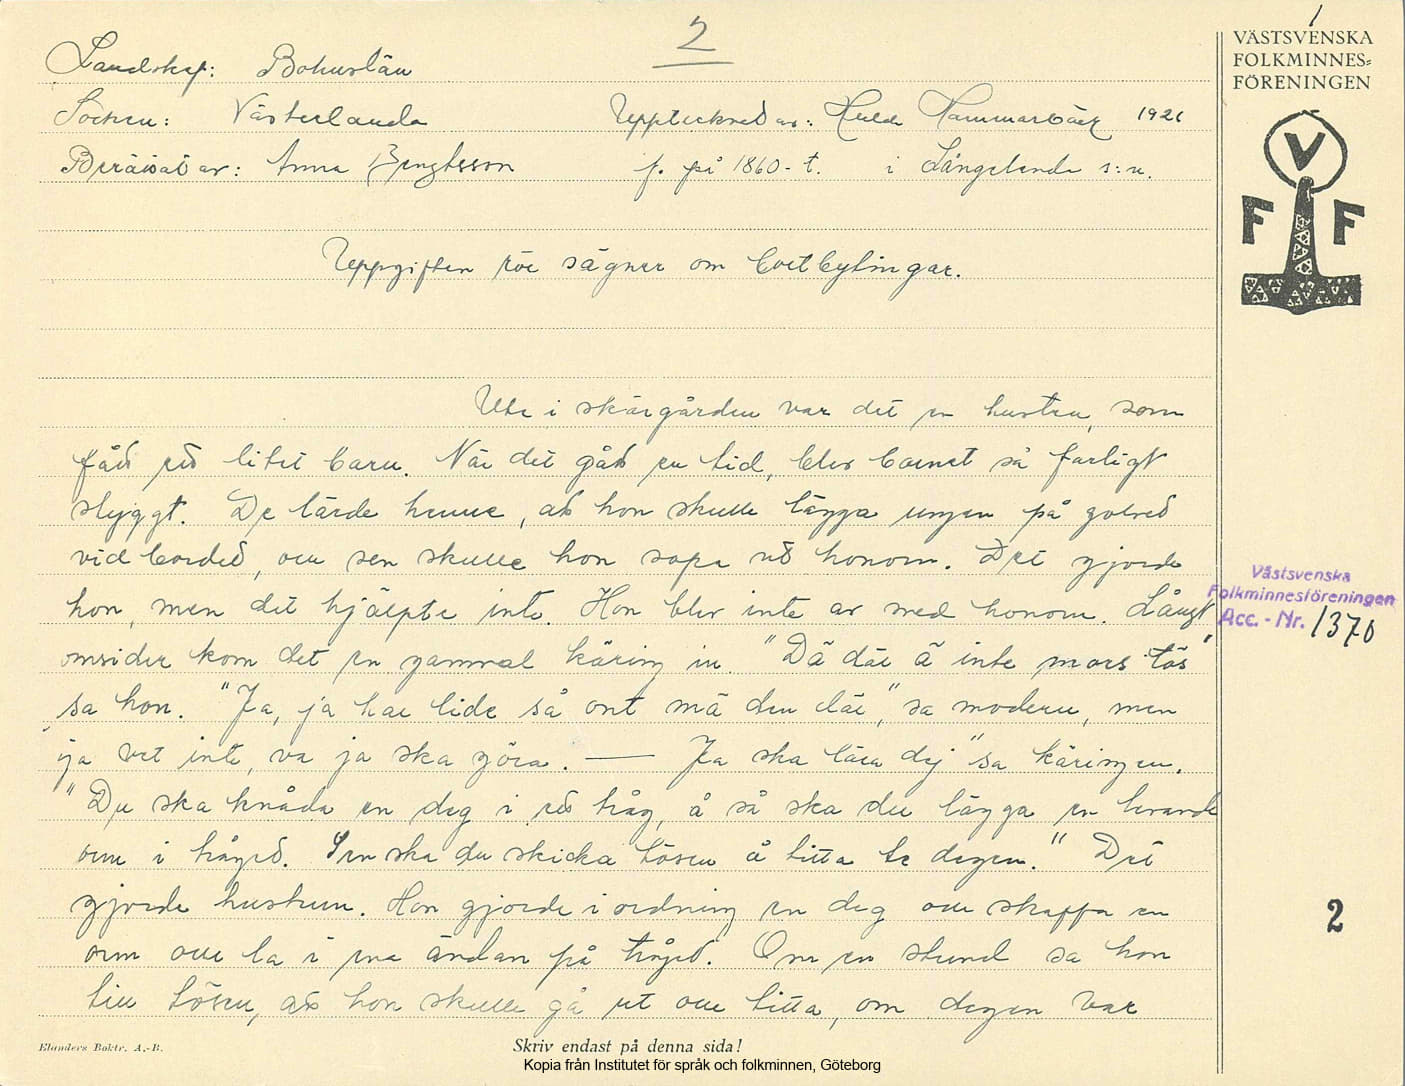 2
1
VÄSTSVENSKA
FOLKMINNES=
FÖRENINGEN
V
F F
Landskap: Bohuslän
Socken: Västerlanda Upptecknad av: Hulda Hammarbäck 1921
Berättat av: Anna Bengtsson f. på 1860-t. i Långelanda s:n.
Uppgiften rör sägner om bortbytingar.
Ute i skärgården var det en hustru, som
fått ett litet barn. När det gått en tid, blev barnet så farligt
styggt. De lärde henne, att hon skulle lägga ungen på golvet
vid bordet, och sen skulle hon sopa ut honom. Det gjorde
hon, men det hjälpte inte. Hon blev inte av med honom. Långt
omsider kom det en gammal käring in. "Dä där ä inte mors tös"
sa hon. "Ja, ja har lide så ont mä den där", sa modern, men
"ja vet inte, va ja ska göra. — Ja ska lära dej" sa käringen.
"Du ska knåda en deg i ett tråg, å så ska du lägga en levande
orm i tråget. Sen ska du skicka tösen å titta te degen." Det
gjorde hustrun. Hon gjorde i ordning en deg och skaffa en
orm och la i ena ändan på tråget. Om en stund sa hon
till tösen, att hon skulle gå ut och titta, om degen var
Västsvenska
Folkminnesföreningen
Acc. - Nr. 1370
2
Elanders Boktr. A.-B.
Skriv endast på denna sida!
Kopia från Institutet för språk och folkminnen, Göteborg